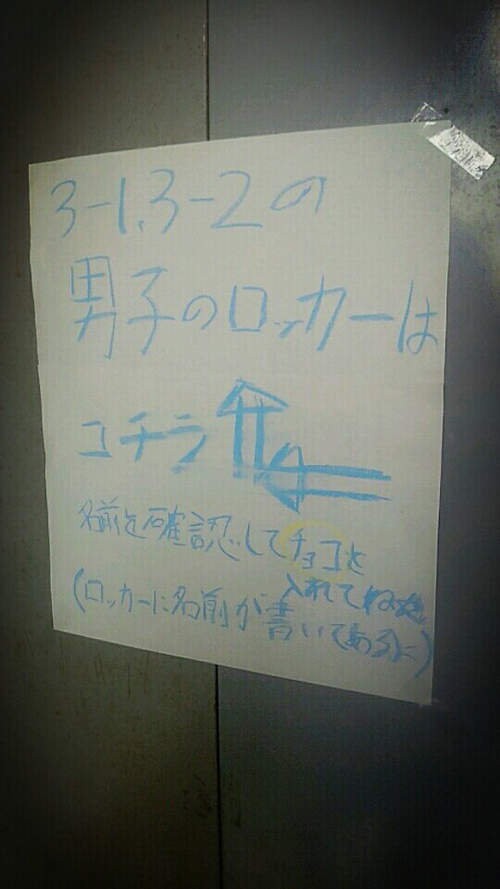 3-1.3-2の
男子のロッカーは
コチラ
名前を確認してチョコを
入れてねっ
(ロッカーに名前が書いてあるよ)